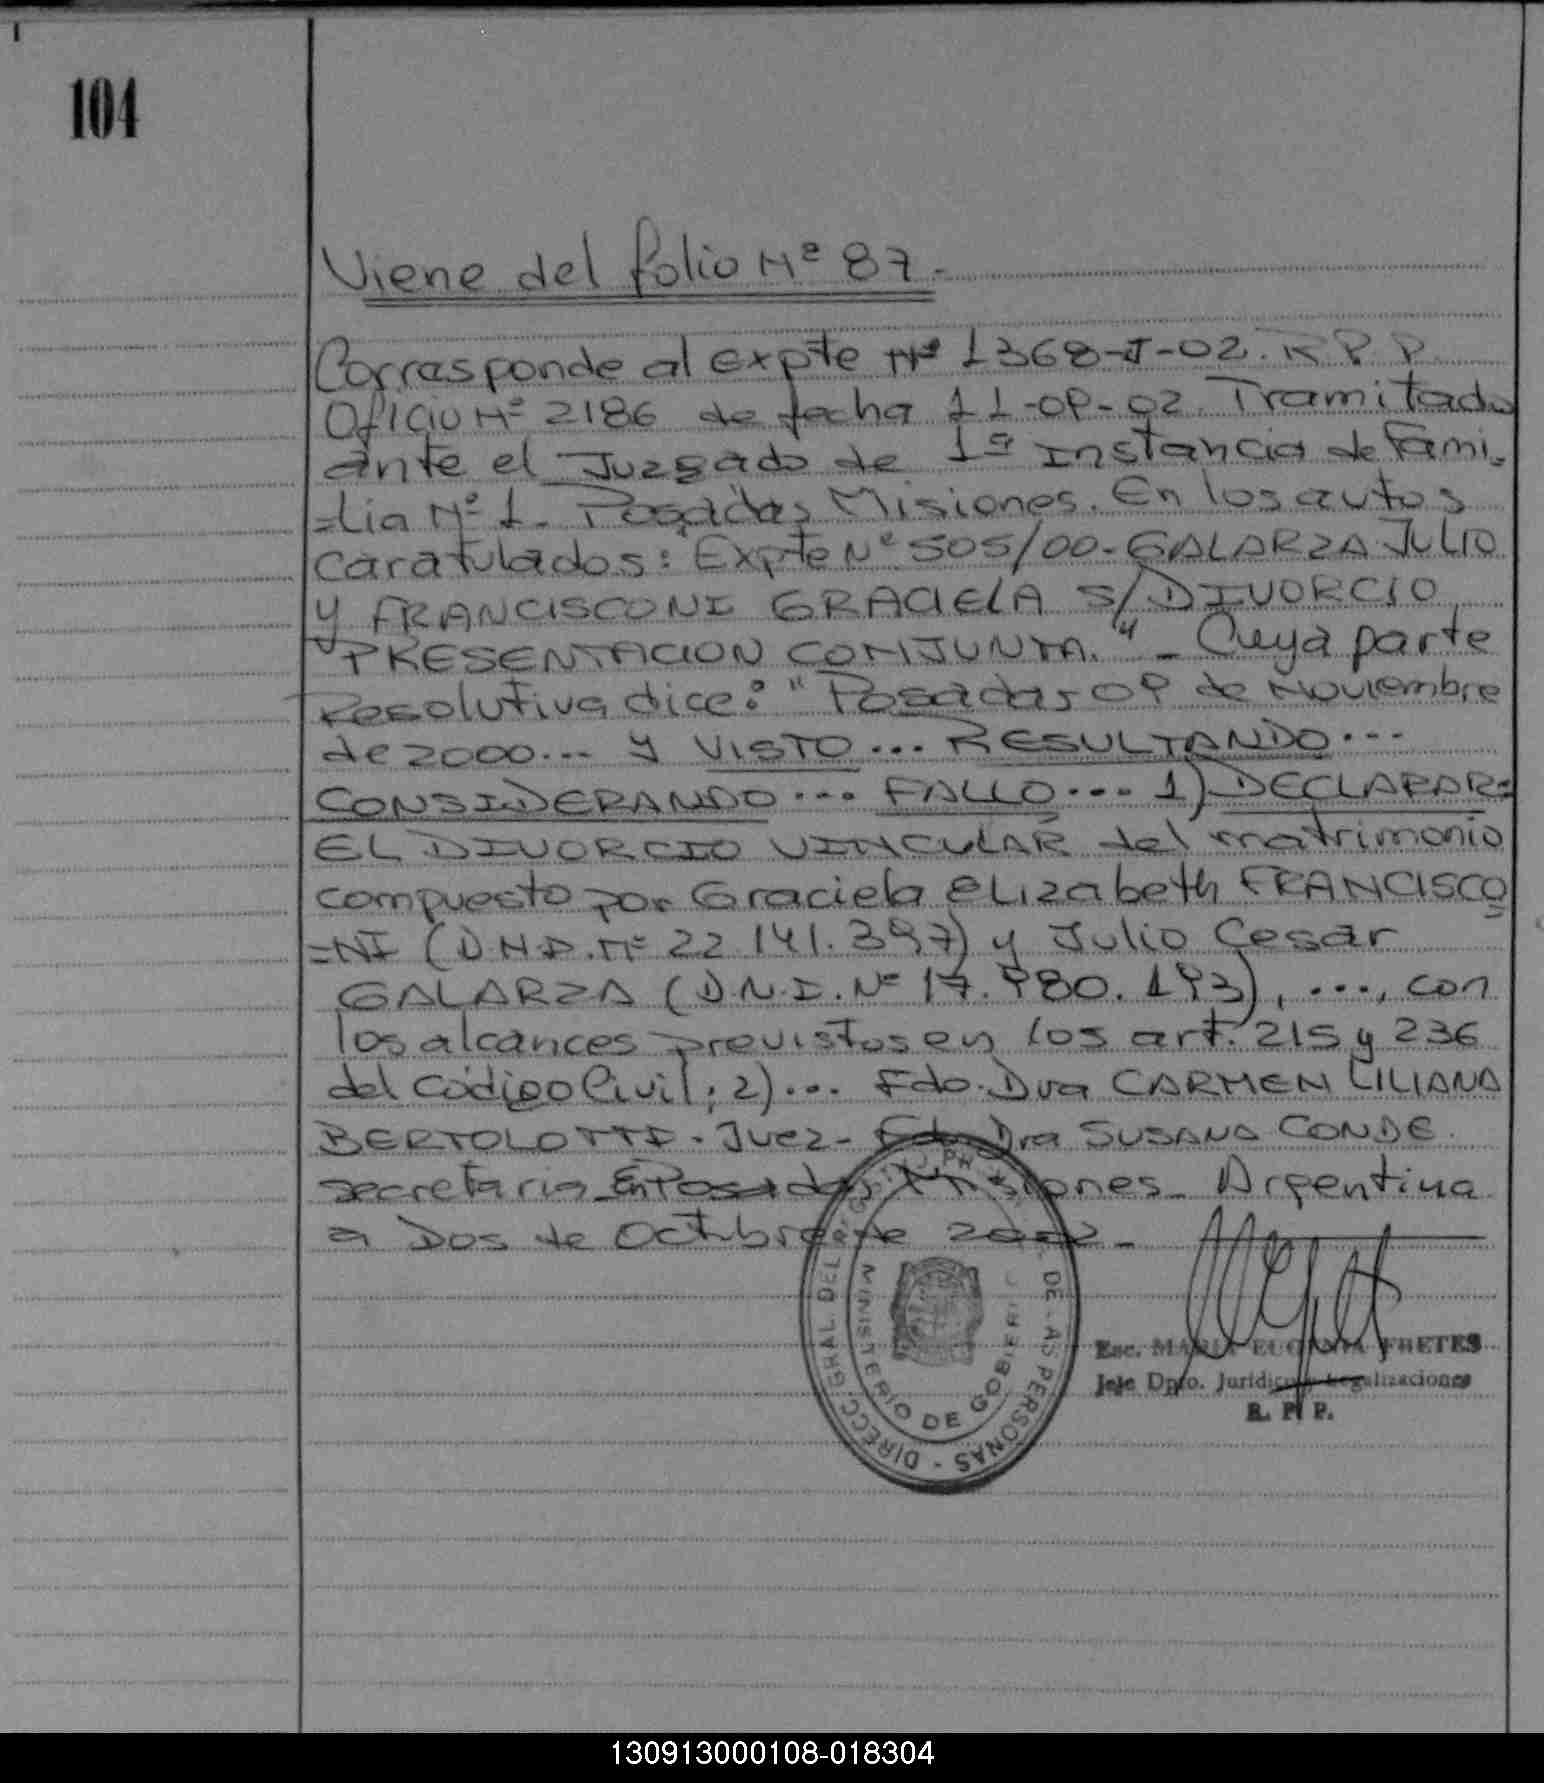 104
Viene del folio Nº 87.-
Corresponde al expte Nº 1368-J-02. R P P
Oficio Nº 2186 de fecha 11-09-02. Tramitado
ante el Juzgado de 1ª Instancia de Fami-
=lia Nº 1- Posadas Misiones. En los autos
Caratulados: "Expte Nº 505/00- GALARZA JULIO
y FRANCISCONI GRACIELA S/ DIVORCIO
PRESENTACION CONJUNTA." - Cuya parte
Resolutiva dice: "Posadas 09 de Noviembre
de 2000... Y VISTO ... RESULTANDO ...
CONSIDERANDO ... FALLO ... 1) DECLARAR=
EL DIVORCIO VINCULAR del matrimonio
compuesto por Graciela Elizabeth FRANCISCO
=NI (D.N.I. Nº 22.141.397) y Julio Cesar
GALARZA (D.N.I. Nº 17.980.193), ..., con
los alcances previstos en los art. 215 y 236
del Código Civil; 2)... Fdo. Dra CARMEN LILIANA
BERTOLOTTI - Juez- Fdo Dra SUSANA CONDE.
secretaria En Posadas Misiones- Argentina
a Dos de Octubre de 2002-
DIRECC. GRAL. DEL DE LAS PERSONAS -
MINISTERIO DE GOBIERNO
Esc. MARIA EUGENIA FRETES
Jefe Dpto. Jurídico y Legalizaciones
R. P. P.
130913000108-018304